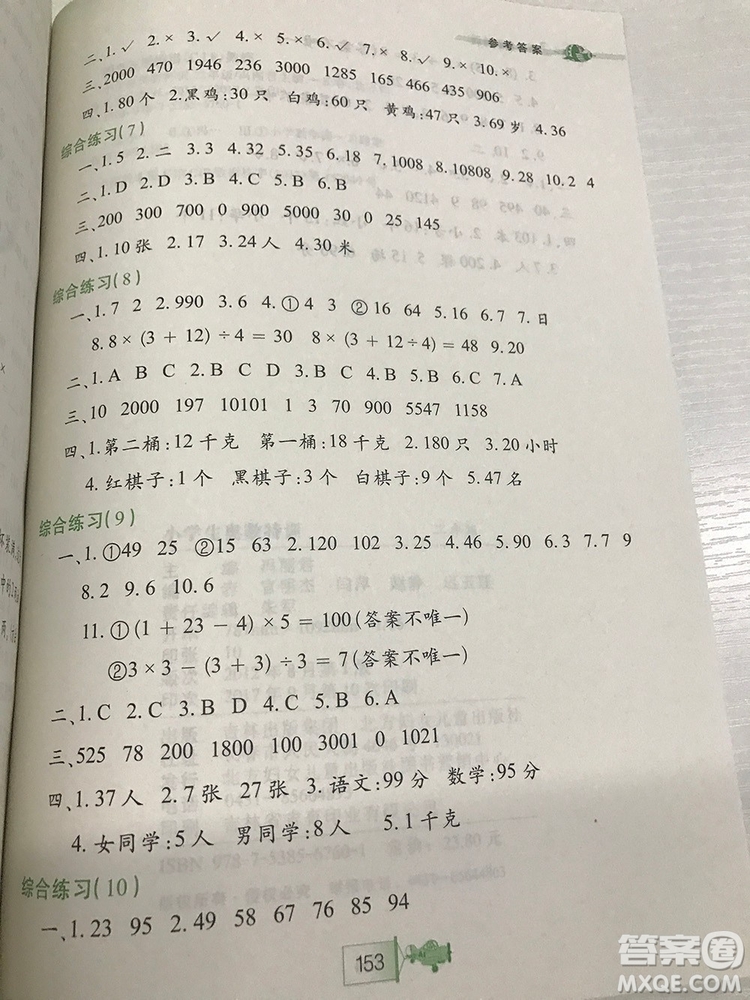 参考答案
二、1.✓ 2.× 3.✓ 4.× 5.× 6.✓ 7.× 8.✓ 9.× 10.×
三、2000 470 1946 236 3000 1285 165 466 435 906
四、1.80 个 2.黑鸡:30 只 白鸡:60 只 黄鸡:47 只 3.69 岁 4.36
综合练习(7)
一、1.5 2.二 3.3 4.32 5.35 6.18 7,1008 8.10808 9.28 10.2 4
二、1.D 2.D 3.C 4.D 5.B 6.B
三、200 300 700 0 900 5000 30 0 25 145
四、1.10 张 2.17 3.24 人 4.30 米
综合练习(8)
一、1.7 2 2.990 3.6 4.①4 3 ②16 64 5.16 6.7 7.日
8.8×(3+12)÷4=30 8×(3+12÷4)=48 9.20
二、1.A B C 2.B C D 3.B 4.C 5.B 6.C 7.A
三、10 2000 197 10101 1 3 70 900 5547 1158
四、1.第二桶:12 千克 第一桶:18 千克 2.180 只 3.20 小时
4.红棋子:1 个 黑棋子:3 个 白棋子:9 个 5.47 名
综合练习(9)
一、1.①49 25 ②15 63 2.120 102 3.25 4.46 5.90 6.3 7.7 9
8.2 9.6 10.6
11.①(1+23-4)×5=100(答案不唯一)
②3×3-(3+3)÷3=7(答案不唯一)
二、1.C 2.C 3.C 4.B D 5.B 6.A
三、525 78 200 1800 100 3001 0 1021
四、1.37 人 2.7 张 27 张 3.语文:99 分 数学:95 分
4.女同学:5 人 男同学:8 人 5.1 千克
综合练习(10)
一、1.23 95 2.49 58 67 76 85 94
153
答案圈
MXQE.COM